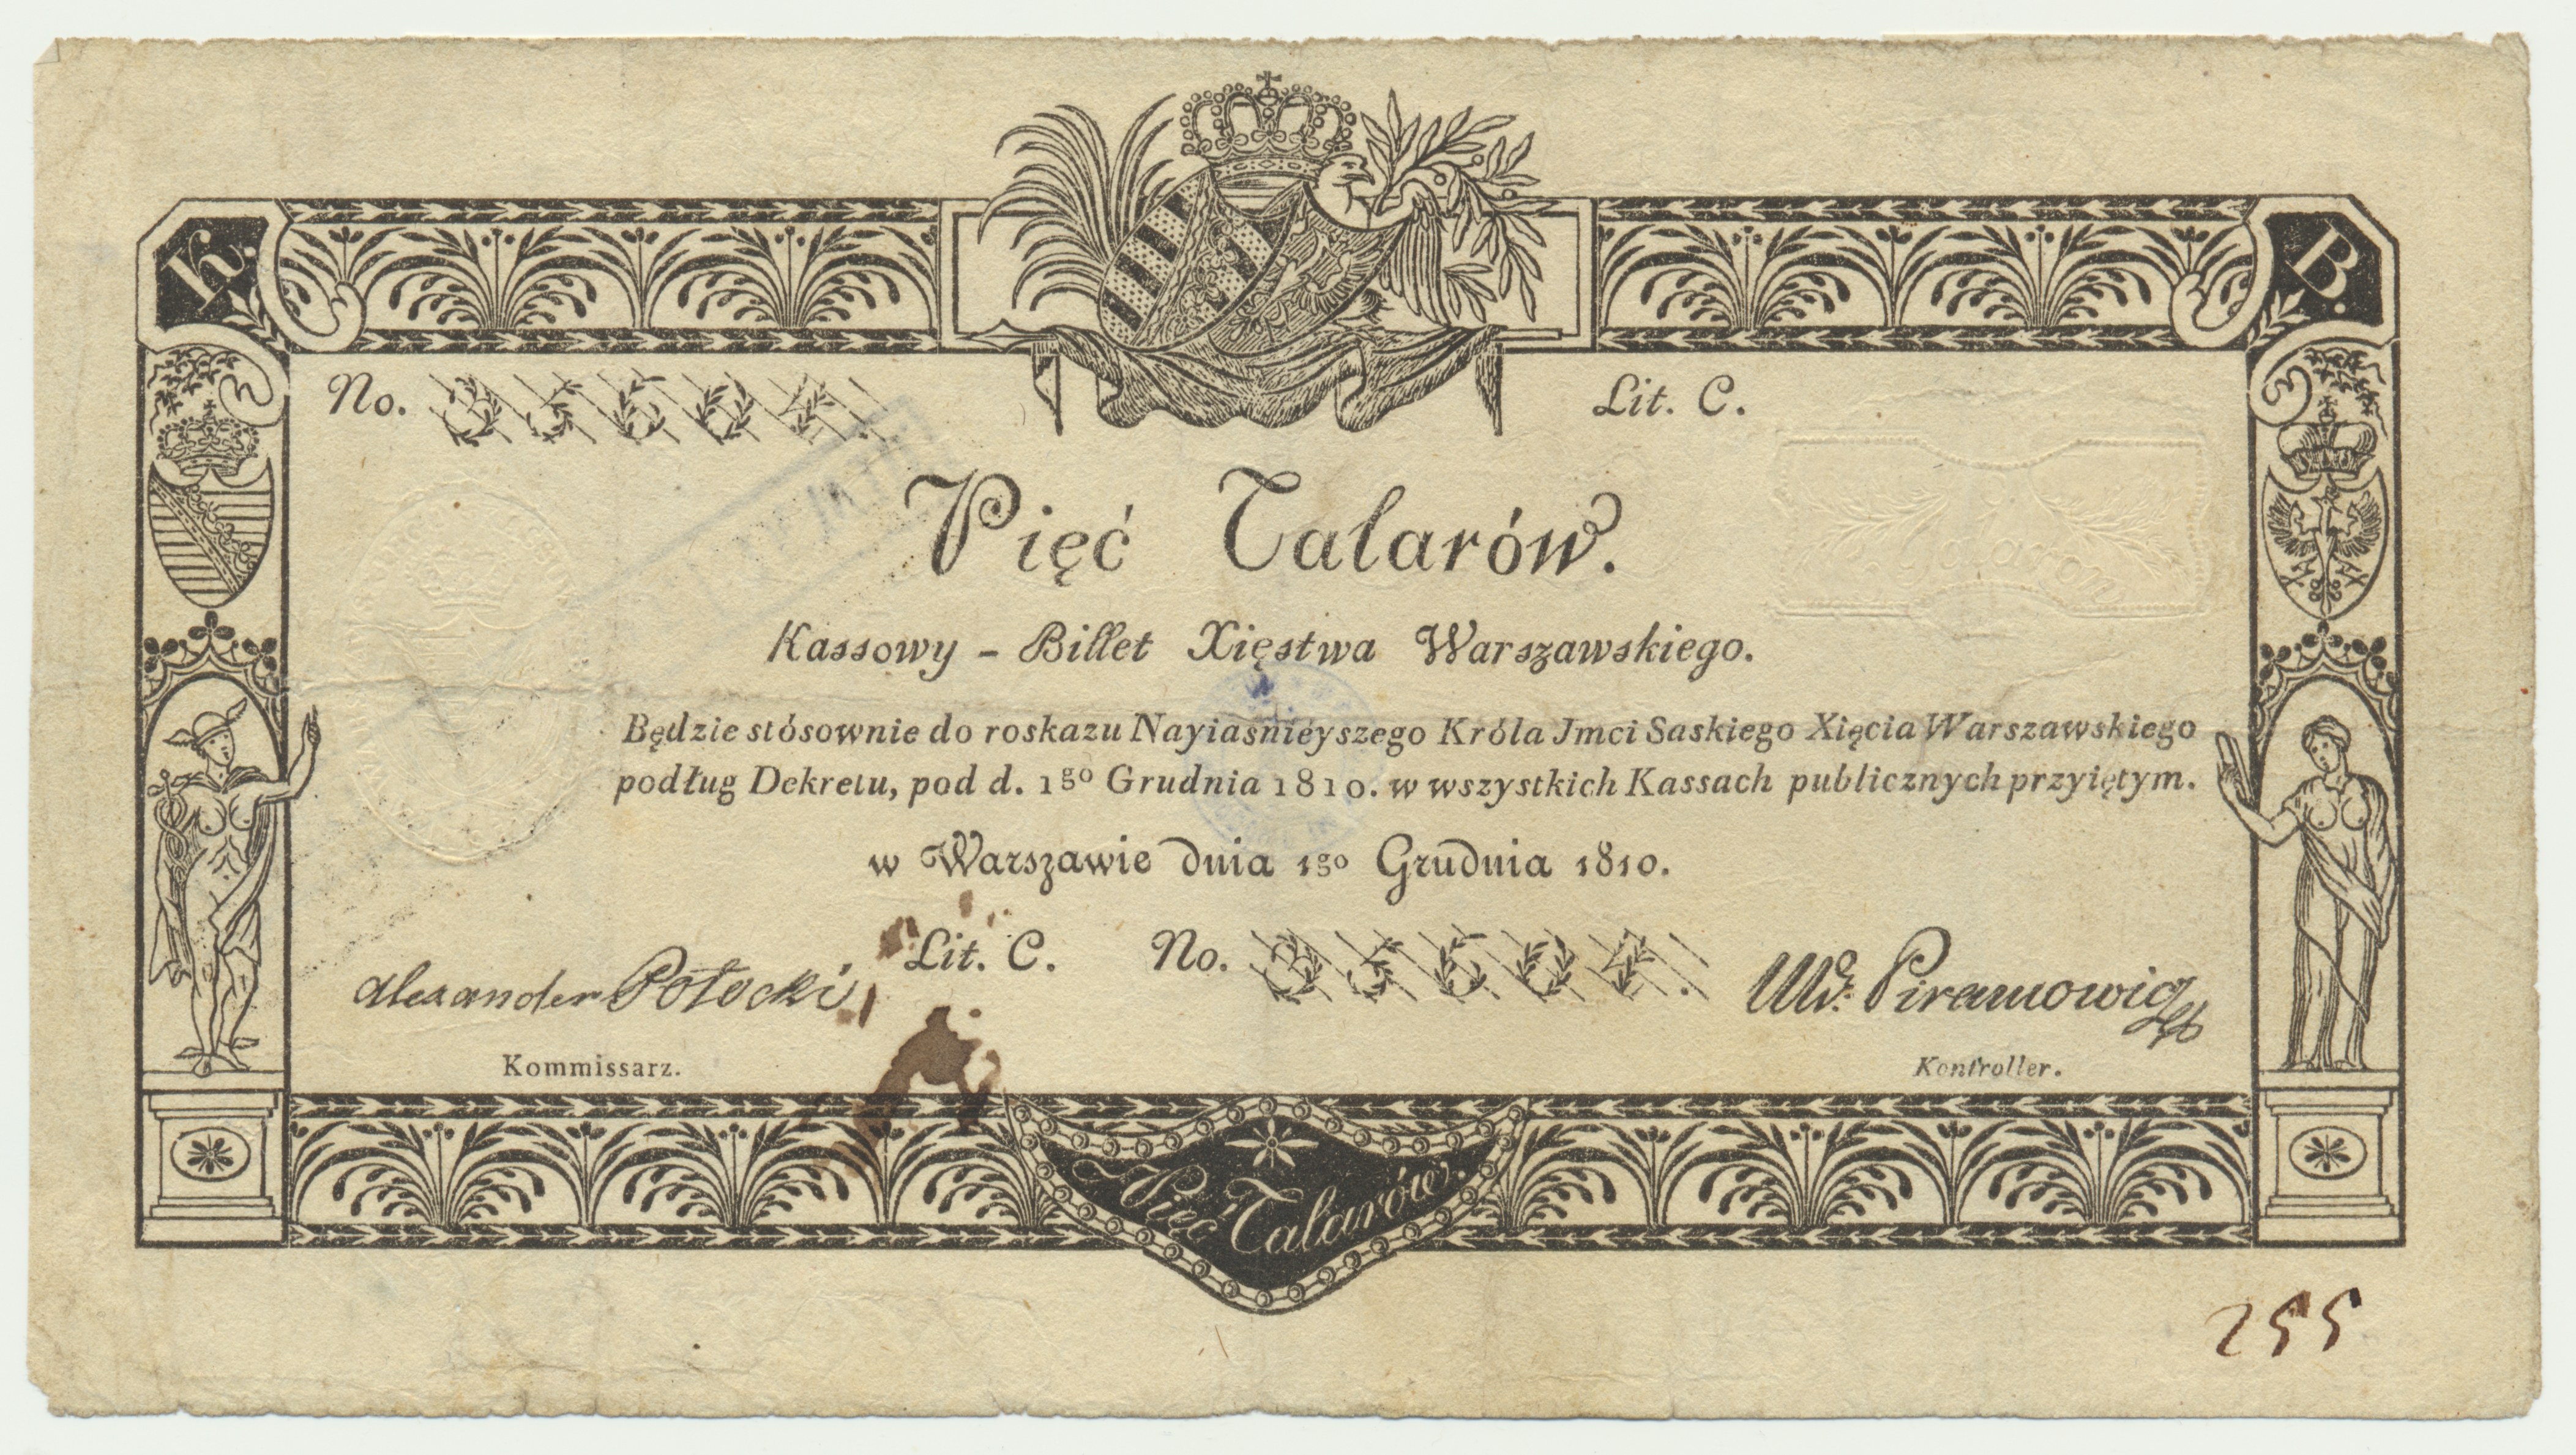 K. B.
No. 35604. Lit. C.
Pięć Talarów.
Kassowy - Billet Xięstwa Warszawskiego.
Będzie stósownie do roskazu Nayiaśnieyszego Króla Jmci Saskiego Xięcia Warszawskiego
podług Dekretu, pod d. 1go Grudnia 1810. w wszystkich Kassach publicznych przyiętym.
w Warszawie dnia 1go Grudnia 1810.
Lit. C. No. 35604.
Alexander Potocki
Kommissarz.
Piramowicz
Kontroller.
Pięć Talarów.
255